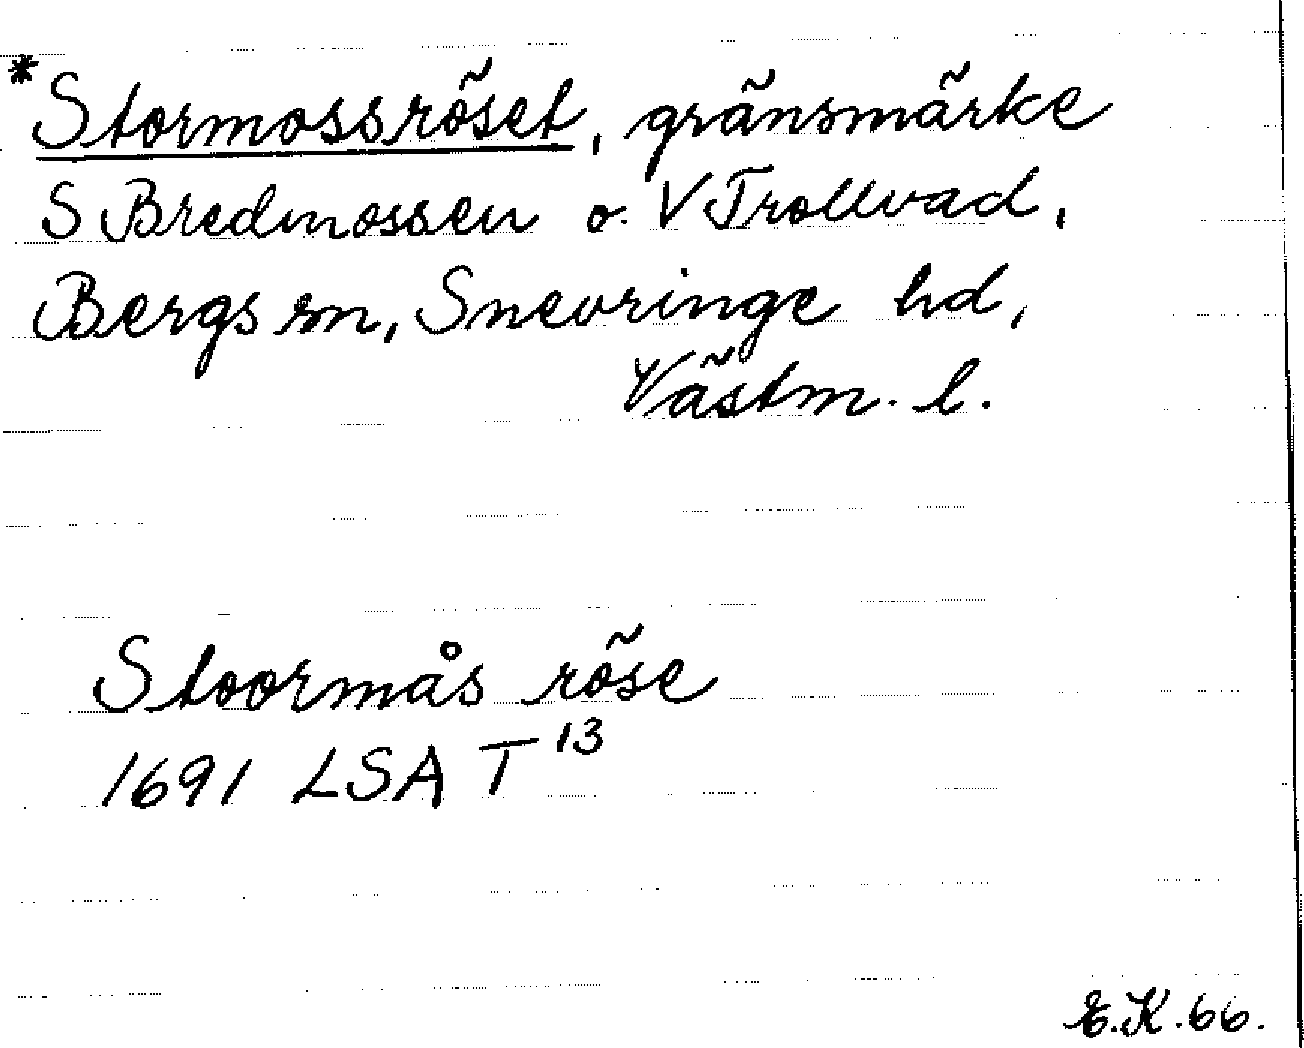 *Stormossröset, gränsmärke
S Bredmossen o. V Trollvad,
Bergs sn, Snevringe hd,
Västm. l.
Stoormås röse
1691 LSA T 13
E.K. 66.